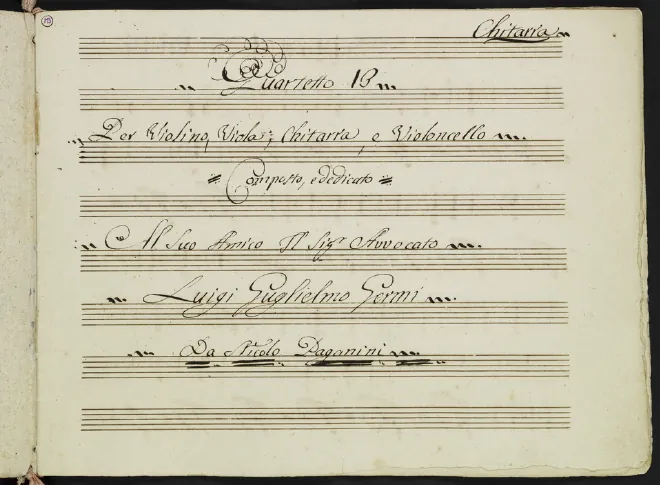 Chitarra
Quartetto 13
Per Violino, Viola, Chitarra, e Violoncello
Composto, e dedicato
Al Suo Amico Il Sigr Avvocato
Luigi Guglielmo Germi
Da Nicolo Paganini